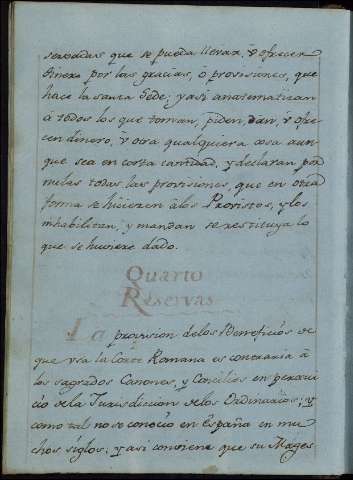 servadas que se pueda llevar, ù ofrecer
dinero por las gracias, ò provisiones, que
hace la santa Sede; y asi anatematizan
à todos los que toman, piden, dan, ù ofre
cen dinero, ù otra qualquiera cosa aun-
que sea en corta cantidad, y declaran por
nulas todas las provisiones, que en otra
forma se hicieren à los Provistos, y los
inhabilitan, y mandan se restituya lo
que se huviere dado.
Quarto
Reservas
La provision de los Beneficios de
que usa la Corte Romana es contraria à
los sagrados Canones, y Concilios en perjui
cio de la Jurisdiccion de los Ordinarios; y
como tal no se conociò en España en mu
chos siglos; y asi conviene que su Mages